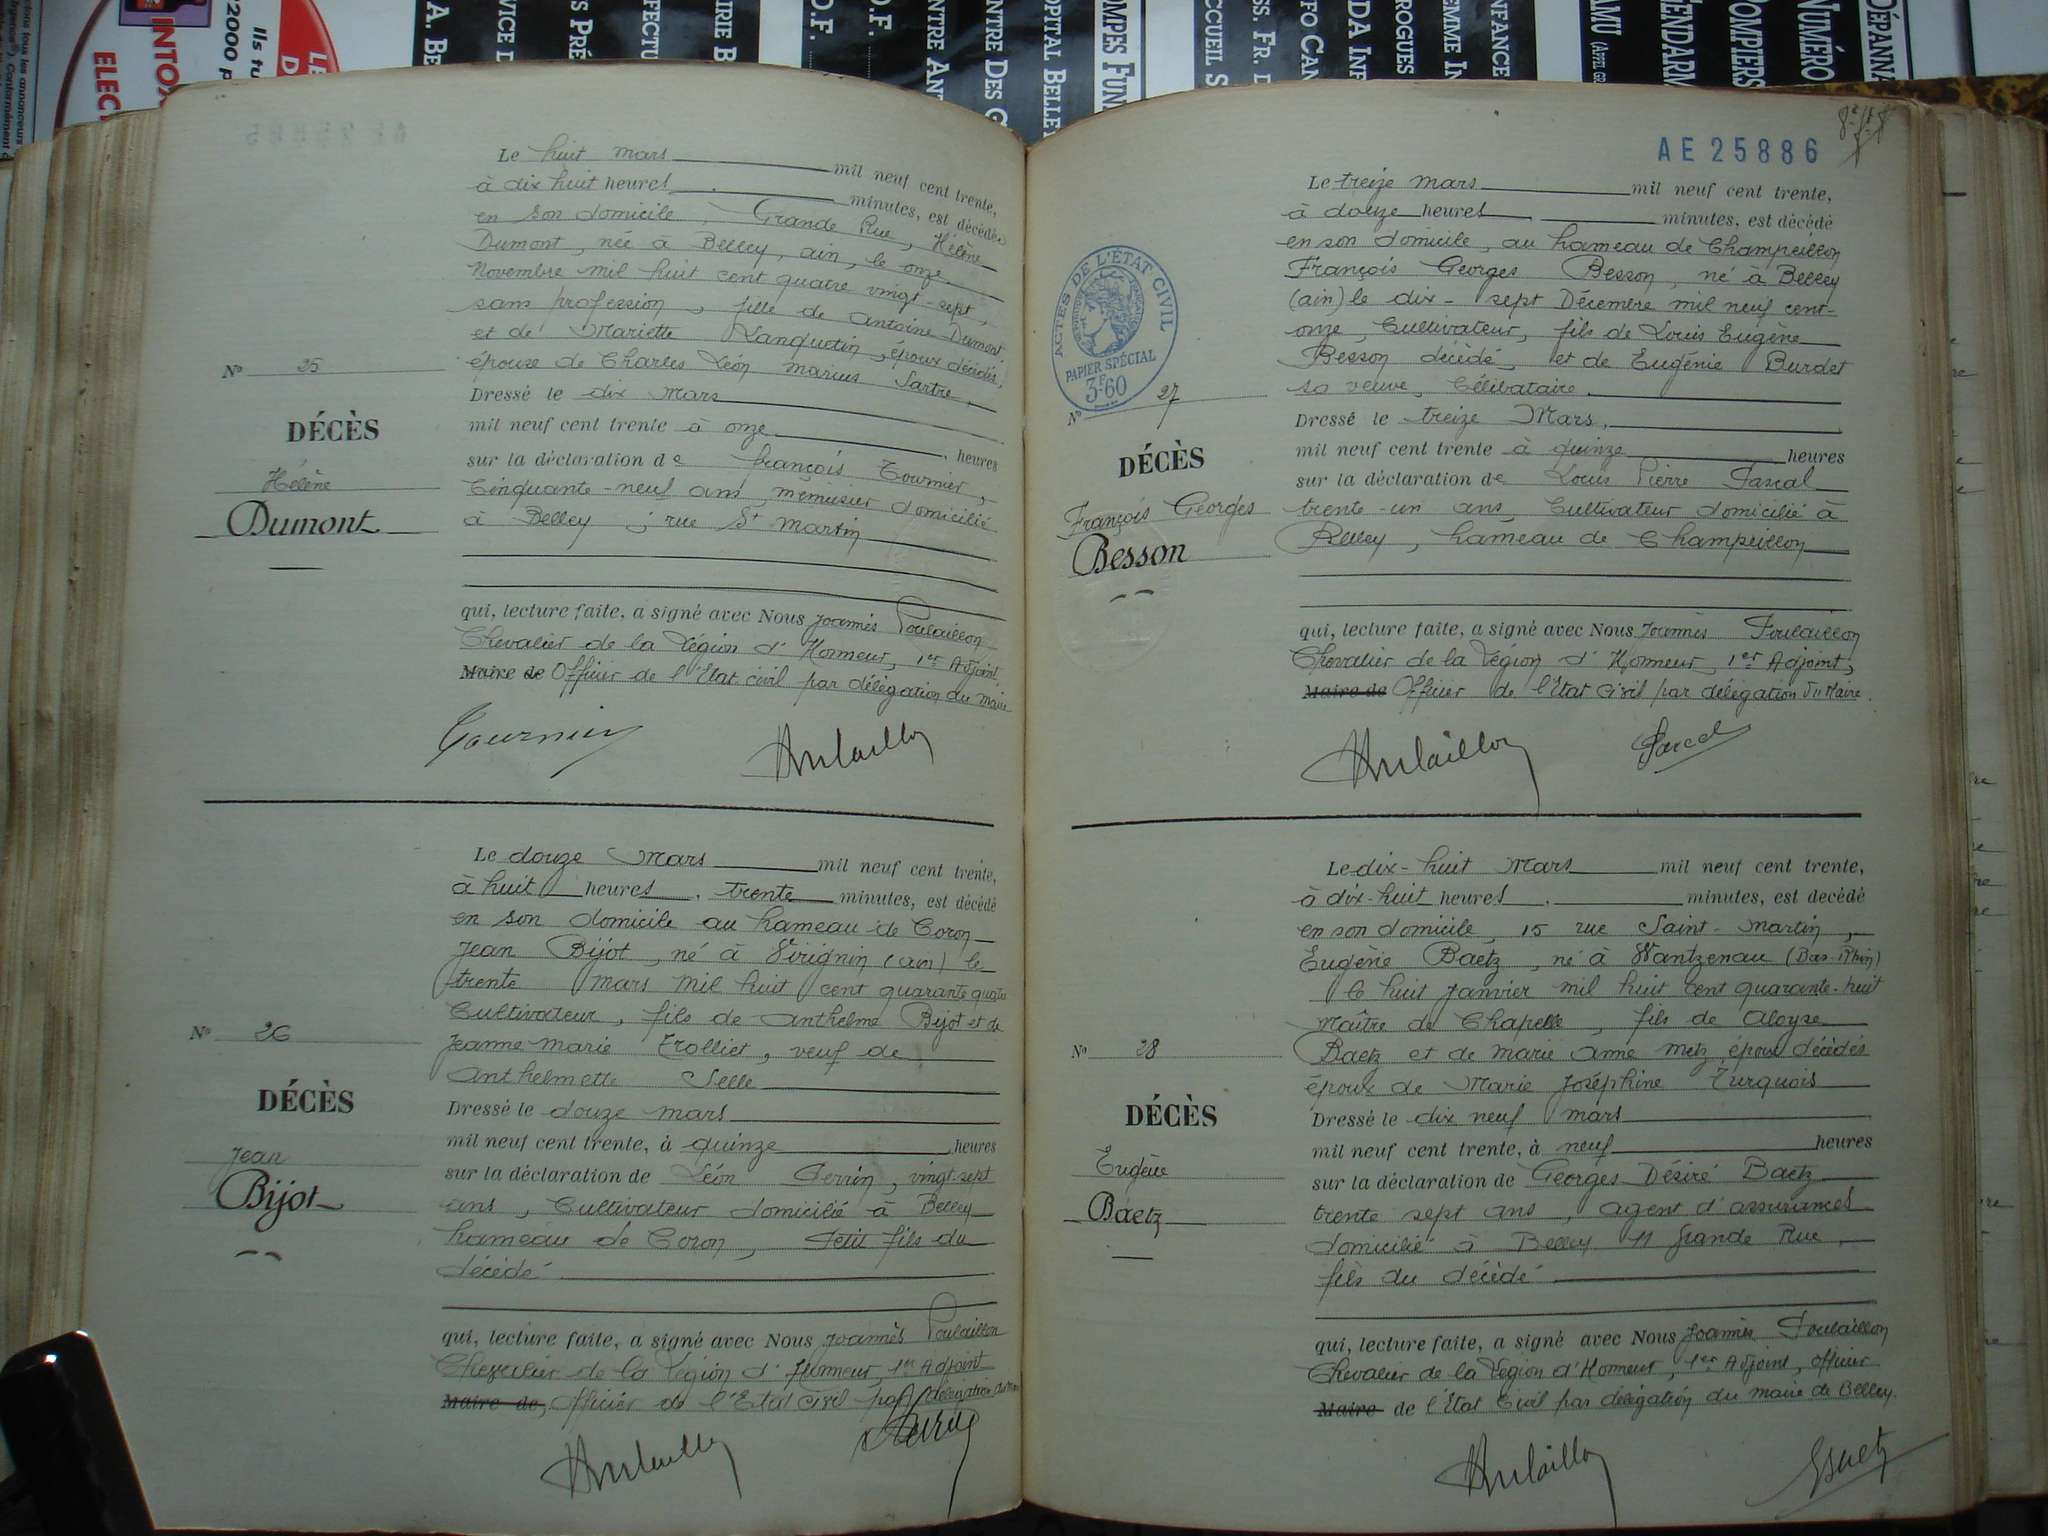 INTOX
ELEC
Ils tu
2000 p
A. BE
VICE D
S PRÉ
FECTU
IRIE B
O.F.
O.F.
NTRE ANT
NTRE DES G
OPITAL BELLE
OMPES FUN
CCUEIL S
SS. FR. D
FO CAN
DA INF
ROGUES
EMME IN
NFANCE
AMU (APPEL GR
GENDARM
POMPIERS
NUMÉRO
DÉPANNA
Le huit mars mil neuf cent trente,
à dix huit heures minutes, est décédée
en son domicile, Grande Rue, Hélène
Dumont, née à Belley, ain, le onze
Novembre mil huit cent quatre vingt-sept,
sans profession, fille de Antoine Dumont
et de Mariette Lanquetin, époux décédés,
épouse de Charles Léon Marius Sartre,
Dressé le dix Mars
mil neuf cent trente à onze heures
sur la déclaration de François Tournier,
Cinquante-neuf ans, menuisier domicilié
à Belley, rue St Martin
N° 25
DÉCÈS
Hélène
Dumont
qui, lecture faite, a signé avec Nous Joannès Poulaillon
Chevalier de la Légion d'Honneur, 1er Adjoint
Maire de Officier de l'Etat civil par délégation du maire
Tournier
Poulaillon
Le douze Mars mil neuf cent trente,
à huit heures, trente minutes, est décédé
en son domicile au hameau de Coron
Jean Bijot, né à Virignin (ain) le
trente mars mil huit cent quarante quatre
Cultivateur, fils de Anthelme Bijot et de
Jeanne Marie Trolliet, veuf de
Anthelmette Selle
Dressé le douze mars
mil neuf cent trente, à quinze heures
sur la déclaration de Léon Perrin, vingt-sept
ans, Cultivateur domicilié à Belley
hameau de Coron, Petit fils du
décédé
N° 26
DÉCÈS
Jean
Bijot
qui, lecture faite, a signé avec Nous Joannès Poulaillon
Chevalier de la Légion d'Honneur, 1er Adjoint
Maire de, Officier de l'Etat Civil par délégation du Maire
Poulaillon
AE 25886
Le treize mars mil neuf cent trente,
à douze heures minutes, est décédé
en son domicile, au hameau de Champeillon
François Georges Besson, né à Belley
(ain) le dix-sept Décembre mil neuf cent-
onze, Cultivateur, fils de Louis Eugène
Besson décédé, et de Eugénie Burdet
sa veuve, Célibataire.
Dressé le treize Mars,
mil neuf cent trente à quinze heures
sur la déclaration de Louis Pierre Pascal
trente-un ans, Cultivateur domicilié à
Belley, hameau de Champeillon
ACTES DE L'ÉTAT CIVIL
PAPIER SPÉCIAL
3F60
N° 27
DÉCÈS
François Georges
Besson
qui, lecture faite, a signé avec Nous Joannès Poulaillon
Chevalier de la Légion d'Honneur, 1er Adjoint,
Maire de Officier de l'Etat Civil par délégation du Maire.
Poulaillon
Pascal
Le dix-huit Mars mil neuf cent trente,
à dix-huit heures minutes, est decédé
en son domicile, 15 rue Saint-Martin,
Eugène Baetz, né à Wantzenau (Bas-Rhin)
le huit janvier mil huit cent quarante-huit
Maître de Chapelle, fils de Aloyse
Baetz et de Marie Anne Metz, époux décédés
époux de Marie Joséphine Turquois
Dressé le dix neuf mars
mil neuf cent trente, à neuf heures
sur la déclaration de Georges Désiré Baetz
trente sept ans, agent d'assurances
domicilié à Belley 11 Grande Rue,
fils du décédé
N° 28
DÉCÈS
Eugène
Baetz
qui, lecture faite, a signé avec Nous Joannès Poulaillon
Chevalier de la Légion d'Honneur, 1er Adjoint, officier
Maire de l'Etat Civil par délégation du maire de Belley.
Poulaillon
GBaetz